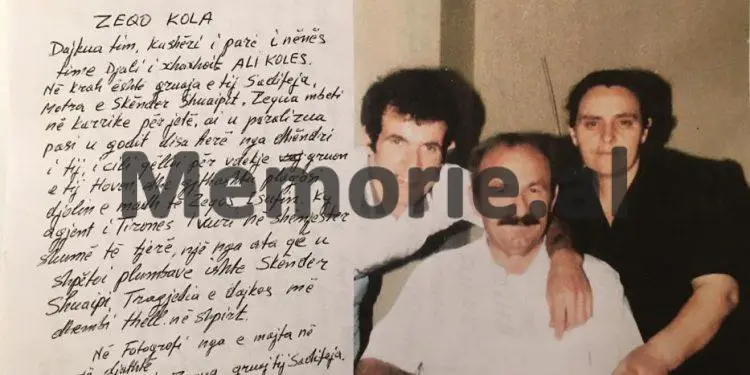 ZEQO KOLA
Dajkua tim, Kushëri i parë i nënës
time Djali i xhaxhait ALI KOLES.
Në krah është gruaja e tij Sadifeja,
Motra e Skënder Shuaipit, Zequa mbeti
në karrike për jetë, ai u paralizua
pasi u godit disa herë nga dhëndri
i tij, i cili qëlloi për vdekje gruan
e tij Hoven, dhe plagosi
djalin e madh të Zeqos Isufin. Ky
agjent i Tironës i vuri në shënjestër
shumë të tjerë, një nga ata që u
shpëtoi plumbave ishte Skënder
Shuaipi. Tragjedia e dajkos më
dhembi thell. në shpirt.
Në Fotografi nga e majta në
të djathtë
gruaj tij Sadifeja.
Memorie.al